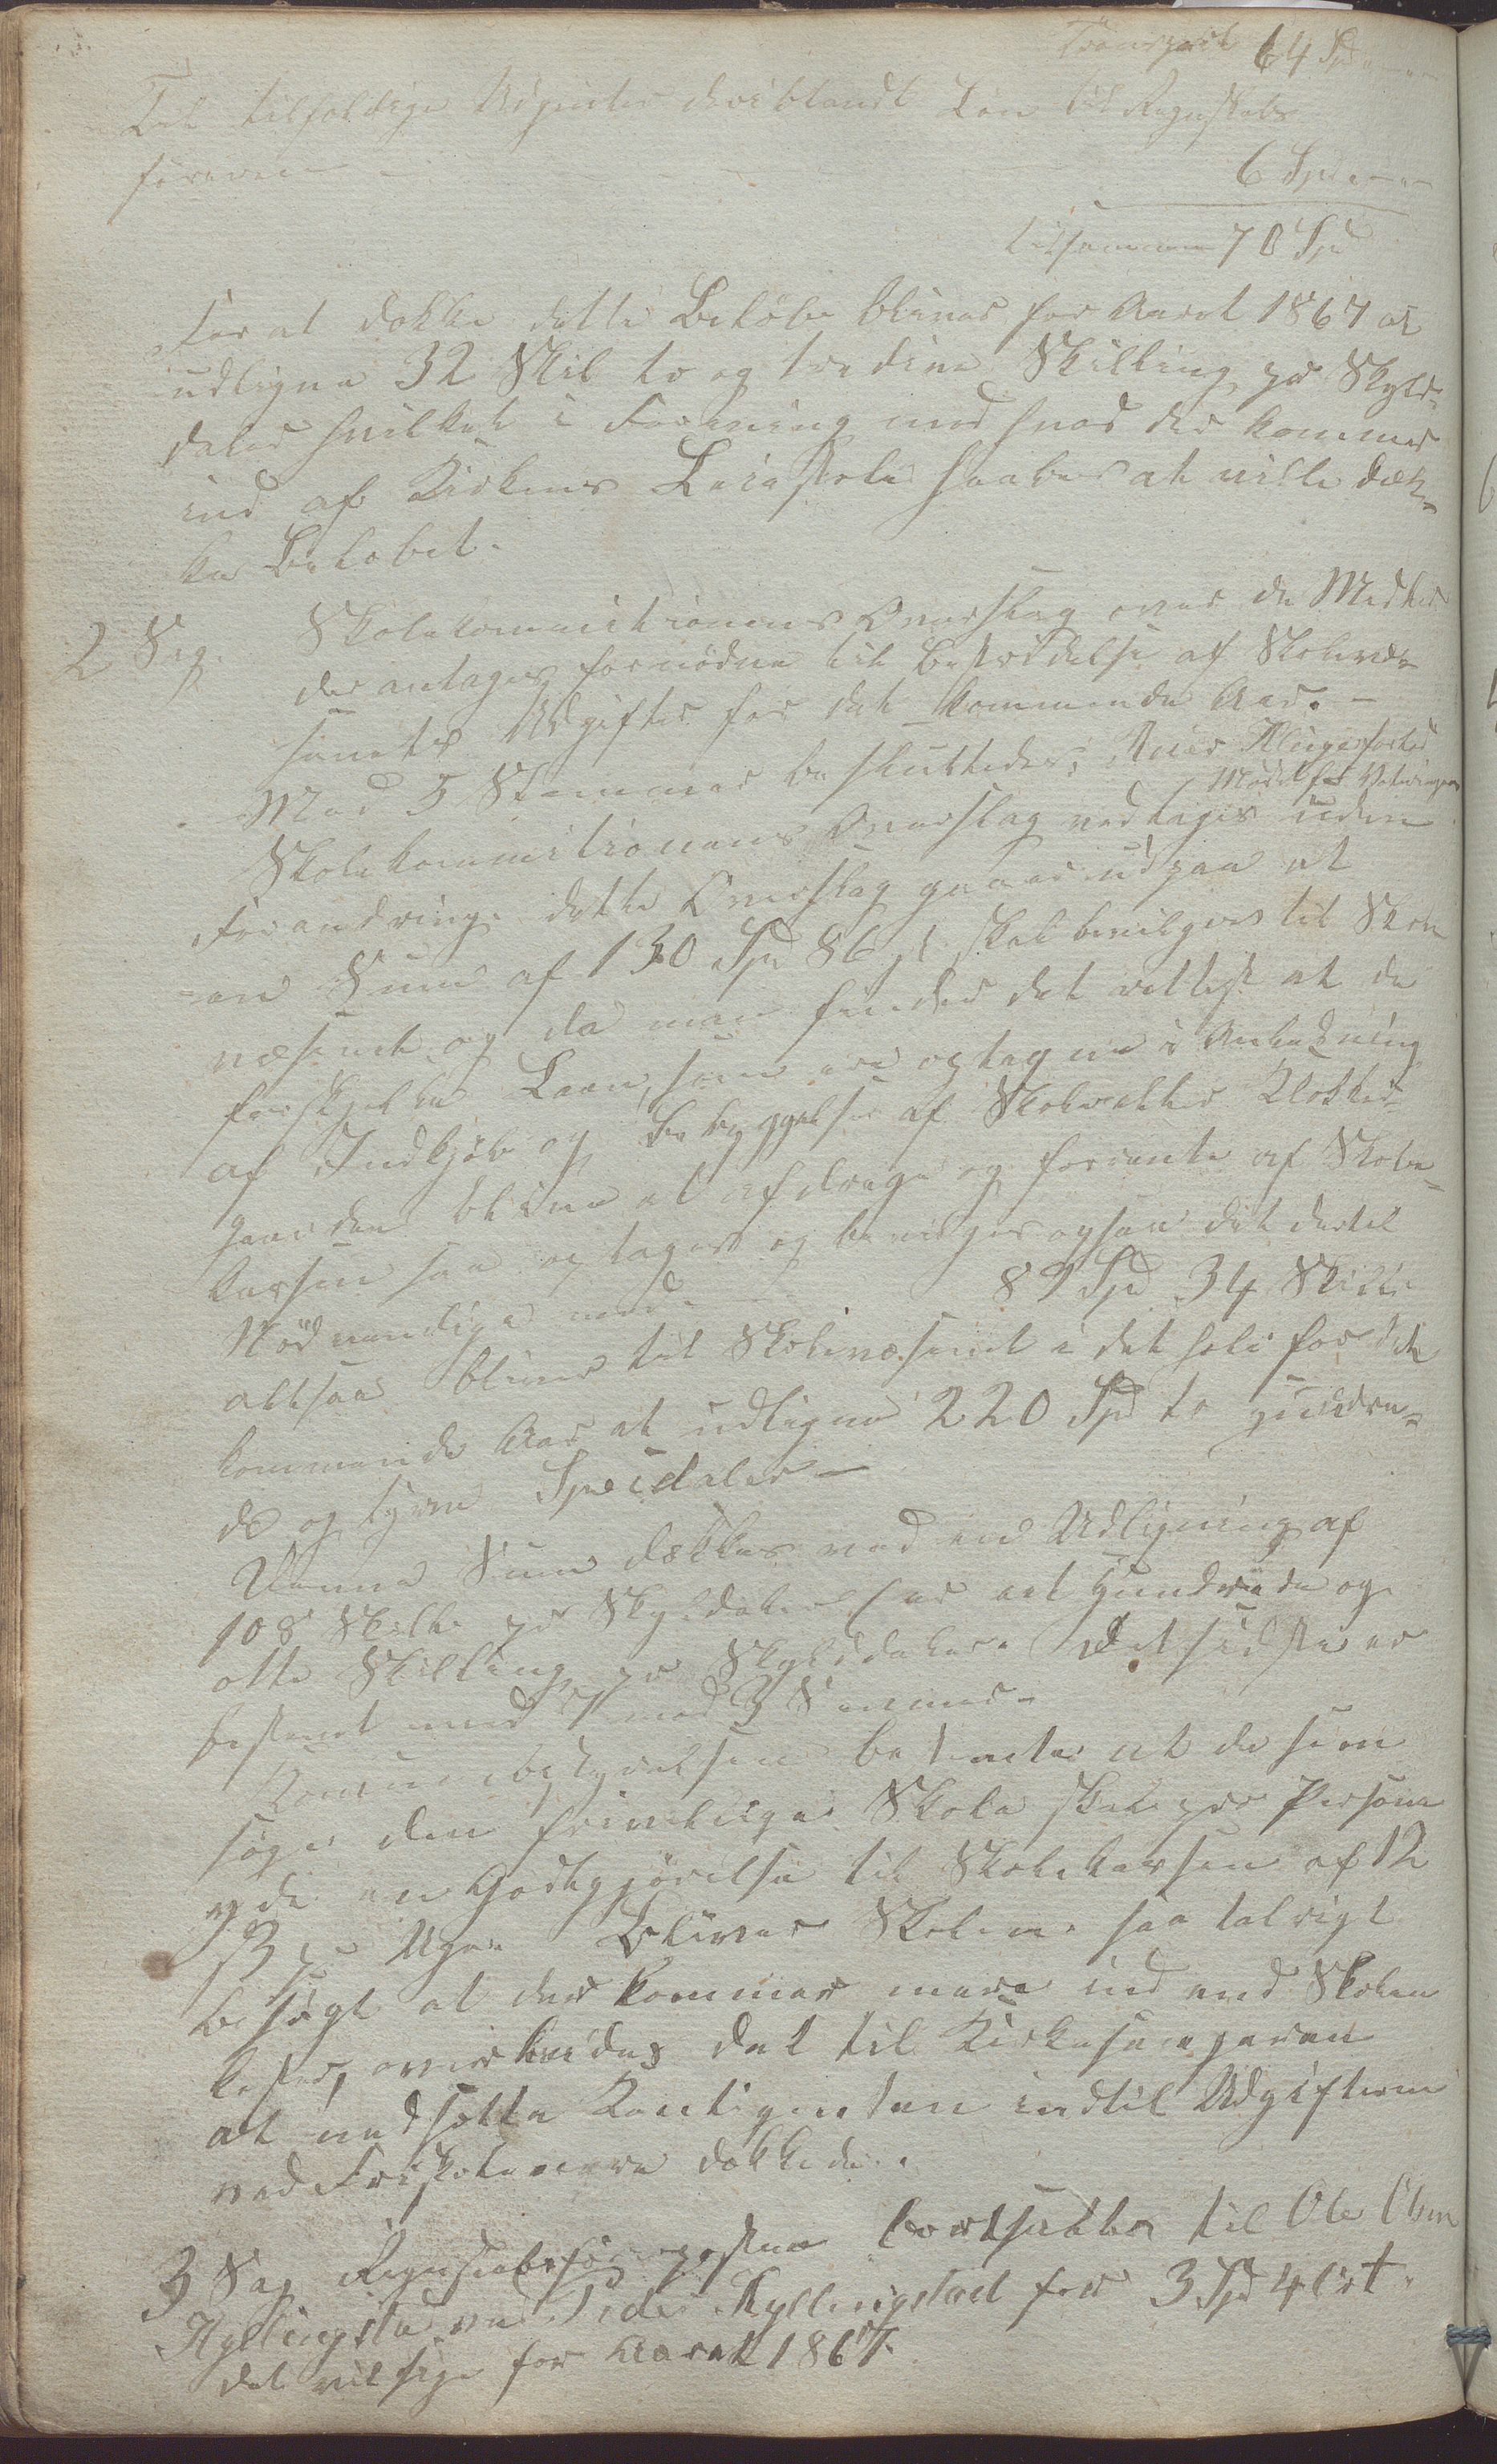 Transport 64 Spd „-„-
Til tilfældige Udgivter deriblandt Løn til Regnskabs
føreren - - - 6 Spd „-„-
tilsammen 70 Spd
For at dække dette Beløb bliver for Aaret 1867 at
udligne 32 Skil to og tredive Skilling pr Skyld-
daler hvilket i Forening med hvad der kommer
ind af Kirkens Leiestole haabes at ville dæk-
ke Beløbet.
2 Sag. Skolekommitionens Overslag over de Midler
der antages fornødne til Bestridelse af Skolevæ-
senets Udgifter for det kommende Aar. -
Med 5 Stemmer besluttedes: Iver Kluge forlod
Mødet før Voteringen
Skolekommitionens Overslag vedtages uden
Forandring. dette Overslag gaar ud paa at
en Sum af 130 Spd 86 s skal bevilges til Skole
væsenet og da man finder det rettest at de
forskjelle Laan, som ere optagne i Anledning
af Indkjøb og Bebyggelse af Klokker-
gaarden blive at afdrage og forrente af Skole-
kassen saa optages og bevilges ogsaa det dertil
Nødvendige med - 89 Spd 34 Skill
altsaa bliver til Skolevæsenet i det hele for det
kommende Aar at udligne 220 Spd to Hundre-
de og tyve Speidaler -
Denne Sum dækkes ved en Udligning af
108 Skill pr Skyldaler er et Hundrede og
otte Skilling pr Skylddaler. Det sidste er
bestemt med 4 mod 3 Stemmer -
Komunebestyrelsen beslutter at de som
søger den frivilige Skole skal pr Person
yde en Godtgjørelse til Skolekassen af 12
s pr Uge. Bliver Skolen saa talrigt
besøgt at der kommer mere ind end Skolen
koster, overlades det til Kirkesangeren
at nedsætte Kontigenten indtil Udgifterne
ved Friskolen ere dækkede.
3 Sag Regnskabsførposten bortsattes til Ole Olsen
Kyllingstad ved Peder Kyllingstad for 3 Spd 4 ort.
det vil sige for Aaret 1867.